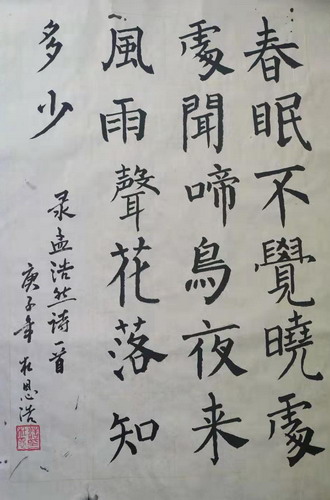 春眠不覺曉處
處聞啼鳥夜来
風雨聲花落知
多少
录孟浩然诗一首
庚子年 杜恩浩